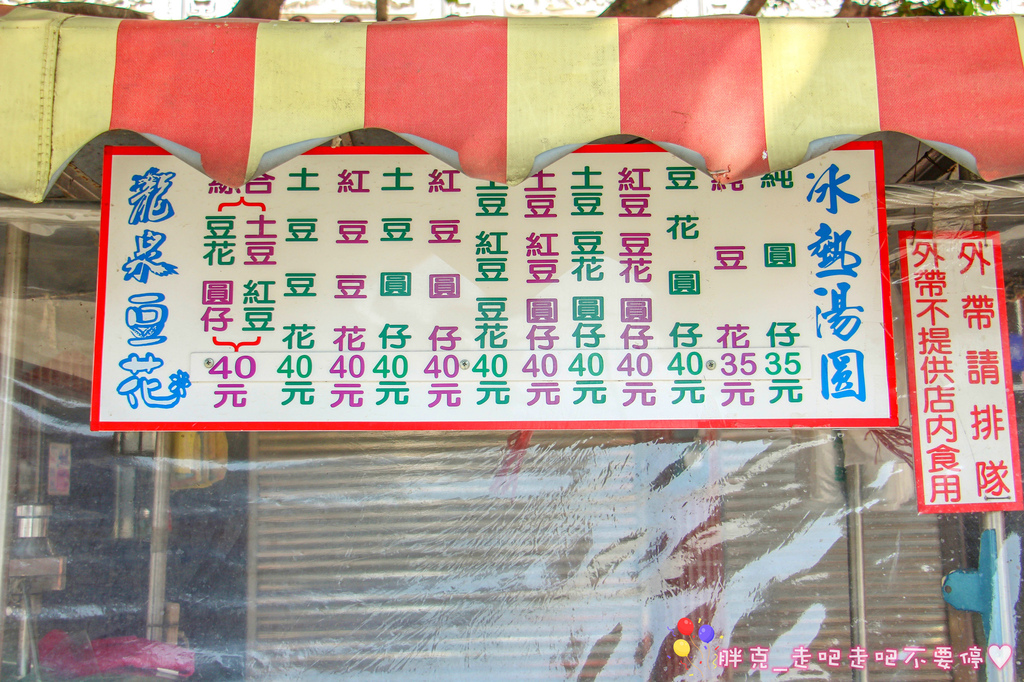 冰熱湯圓
純圓仔35元
純豆花35元
豆花圓仔40元
紅豆豆花圓仔40元
土豆豆花圓仔40元
土豆紅豆圓仔40元
土豆紅豆豆花40元
紅豆圓仔40元
土豆圓仔40元
紅豆豆花40元
土豆豆花40元
綜合
土豆紅豆
豆花圓仔
40元
龍泉豆花
外帶請排隊
外帶不提供店內食用
胖克_走吧走吧不要停♡